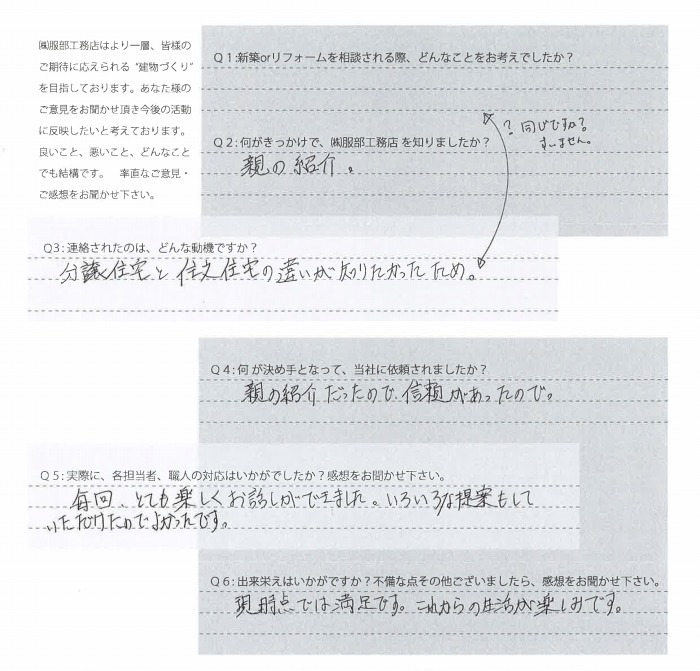 ㈱服部工務店はより一層、皆様の
ご期待に応えられる“建物づくり”
を目指しております。あなた様の
ご意見をお聞かせ頂き今後の活動
に反映したいと考えております。
良いこと、悪いこと、どんなこと
でも結構です。 率直なご意見・
ご感想をお聞かせ下さい。
Q1:新築orリフォームを相談される際、どんなことをお考えでしたか？
? 同じですか?
すいません。
Q2:何がきっかけで、㈱服部工務店 を知りましたか？
親の紹介。
Q3:連絡されたのは、どんな動機ですか？
分譲住宅と注文住宅の違いが知りたかったため。
Q4:何 が決め手となって、当社に依頼されましたか？
親の紹介だったので、信頼があったので。
Q5:実際に、各担当者、職人の対応はいかがでしたか？感想をお聞かせ下さい。
毎回、とても楽しくお話しができました。いろいろな提案もして
いただけたのでよかったです。
Q6:出来栄えはいかがですか？不備な点その他ございましたら、感想をお聞かせ下さい。
現時点では満足です。これからの生活が楽しみです。